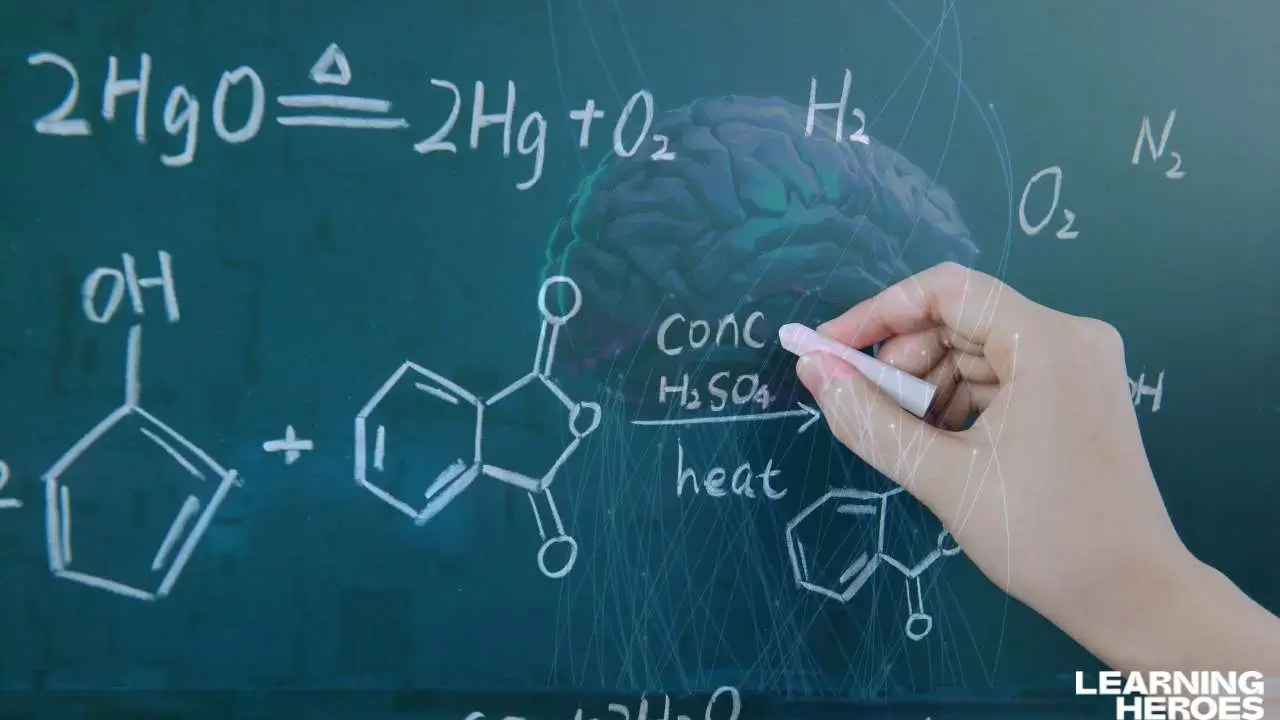 2HgO ≜ 2Hg + O₂
H₂
N₂
O₂
OH
O
+
O
O
conc
H₂SO₄
heat
O
LEARNING
HEROES